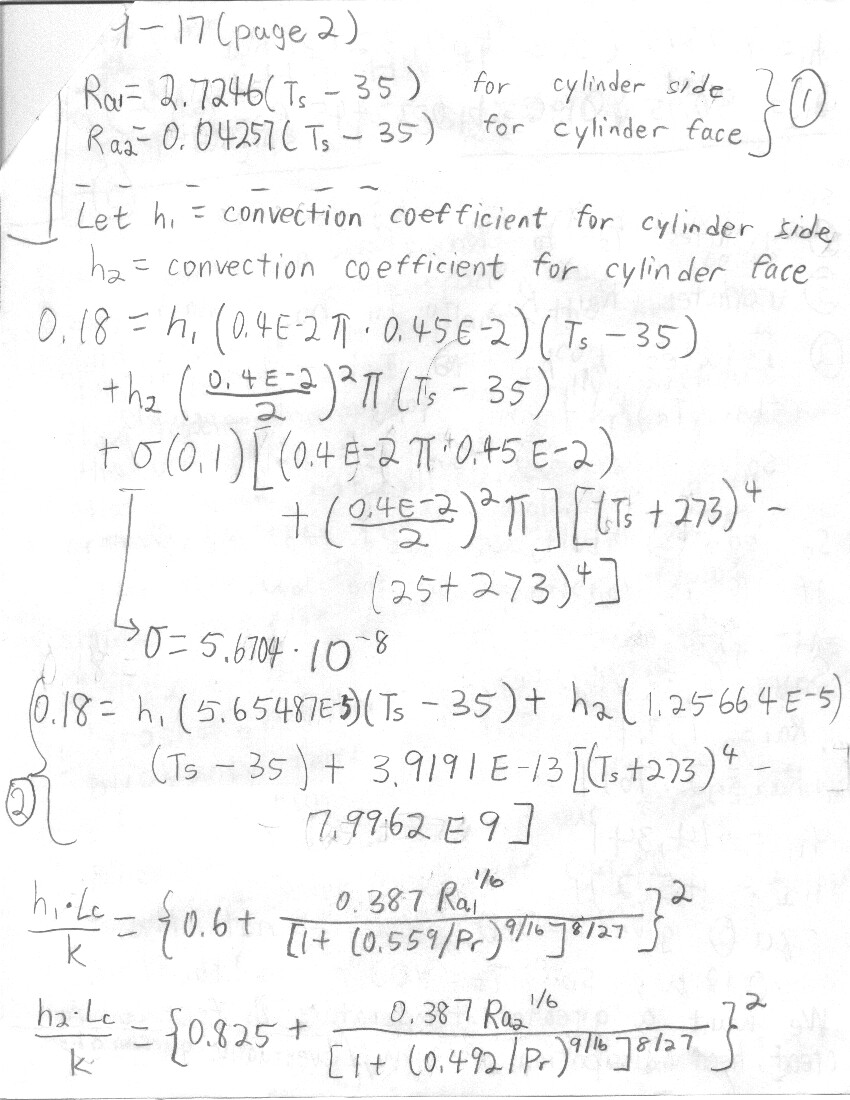 9-17 (page 2)
Ra1 = 2.7246(Ts - 35) for cylinder side
Ra2 = 0.04257(Ts - 35) for cylinder face } ①
Let h₁ = convection coefficient for cylinder side
h₂ = convection coefficient for cylinder face
0.18 = h₁ (0.4E-2 π · 0.45E-2)(Ts - 35)
+ h₂ (0.4E-2 / 2)² π (Ts - 35)
+ σ(0.1)[(0.4E-2 π · 0.45E-2)
+ (0.4E-2 / 2)² π][(Ts + 273)⁴ -
(25 + 273)⁴]
→ σ = 5.6704 · 10⁻⁸
② { 0.18 = h₁ (5.65487E-5)(Ts - 35) + h₂ (1.25664E-5)
(Ts - 35) + 3.9191E-13[(Ts + 273)⁴ -
7.9962E9]
h₁·Lc / k = {0.6 + 0.387 Ra1^1/6 / [1 + (0.559/Pr)^9/16]^8/27}²
h₂·Lc / k = {0.825 + 0.387 Ra2^1/6 / [1 + (0.492/Pr)^9/16]^8/27}²